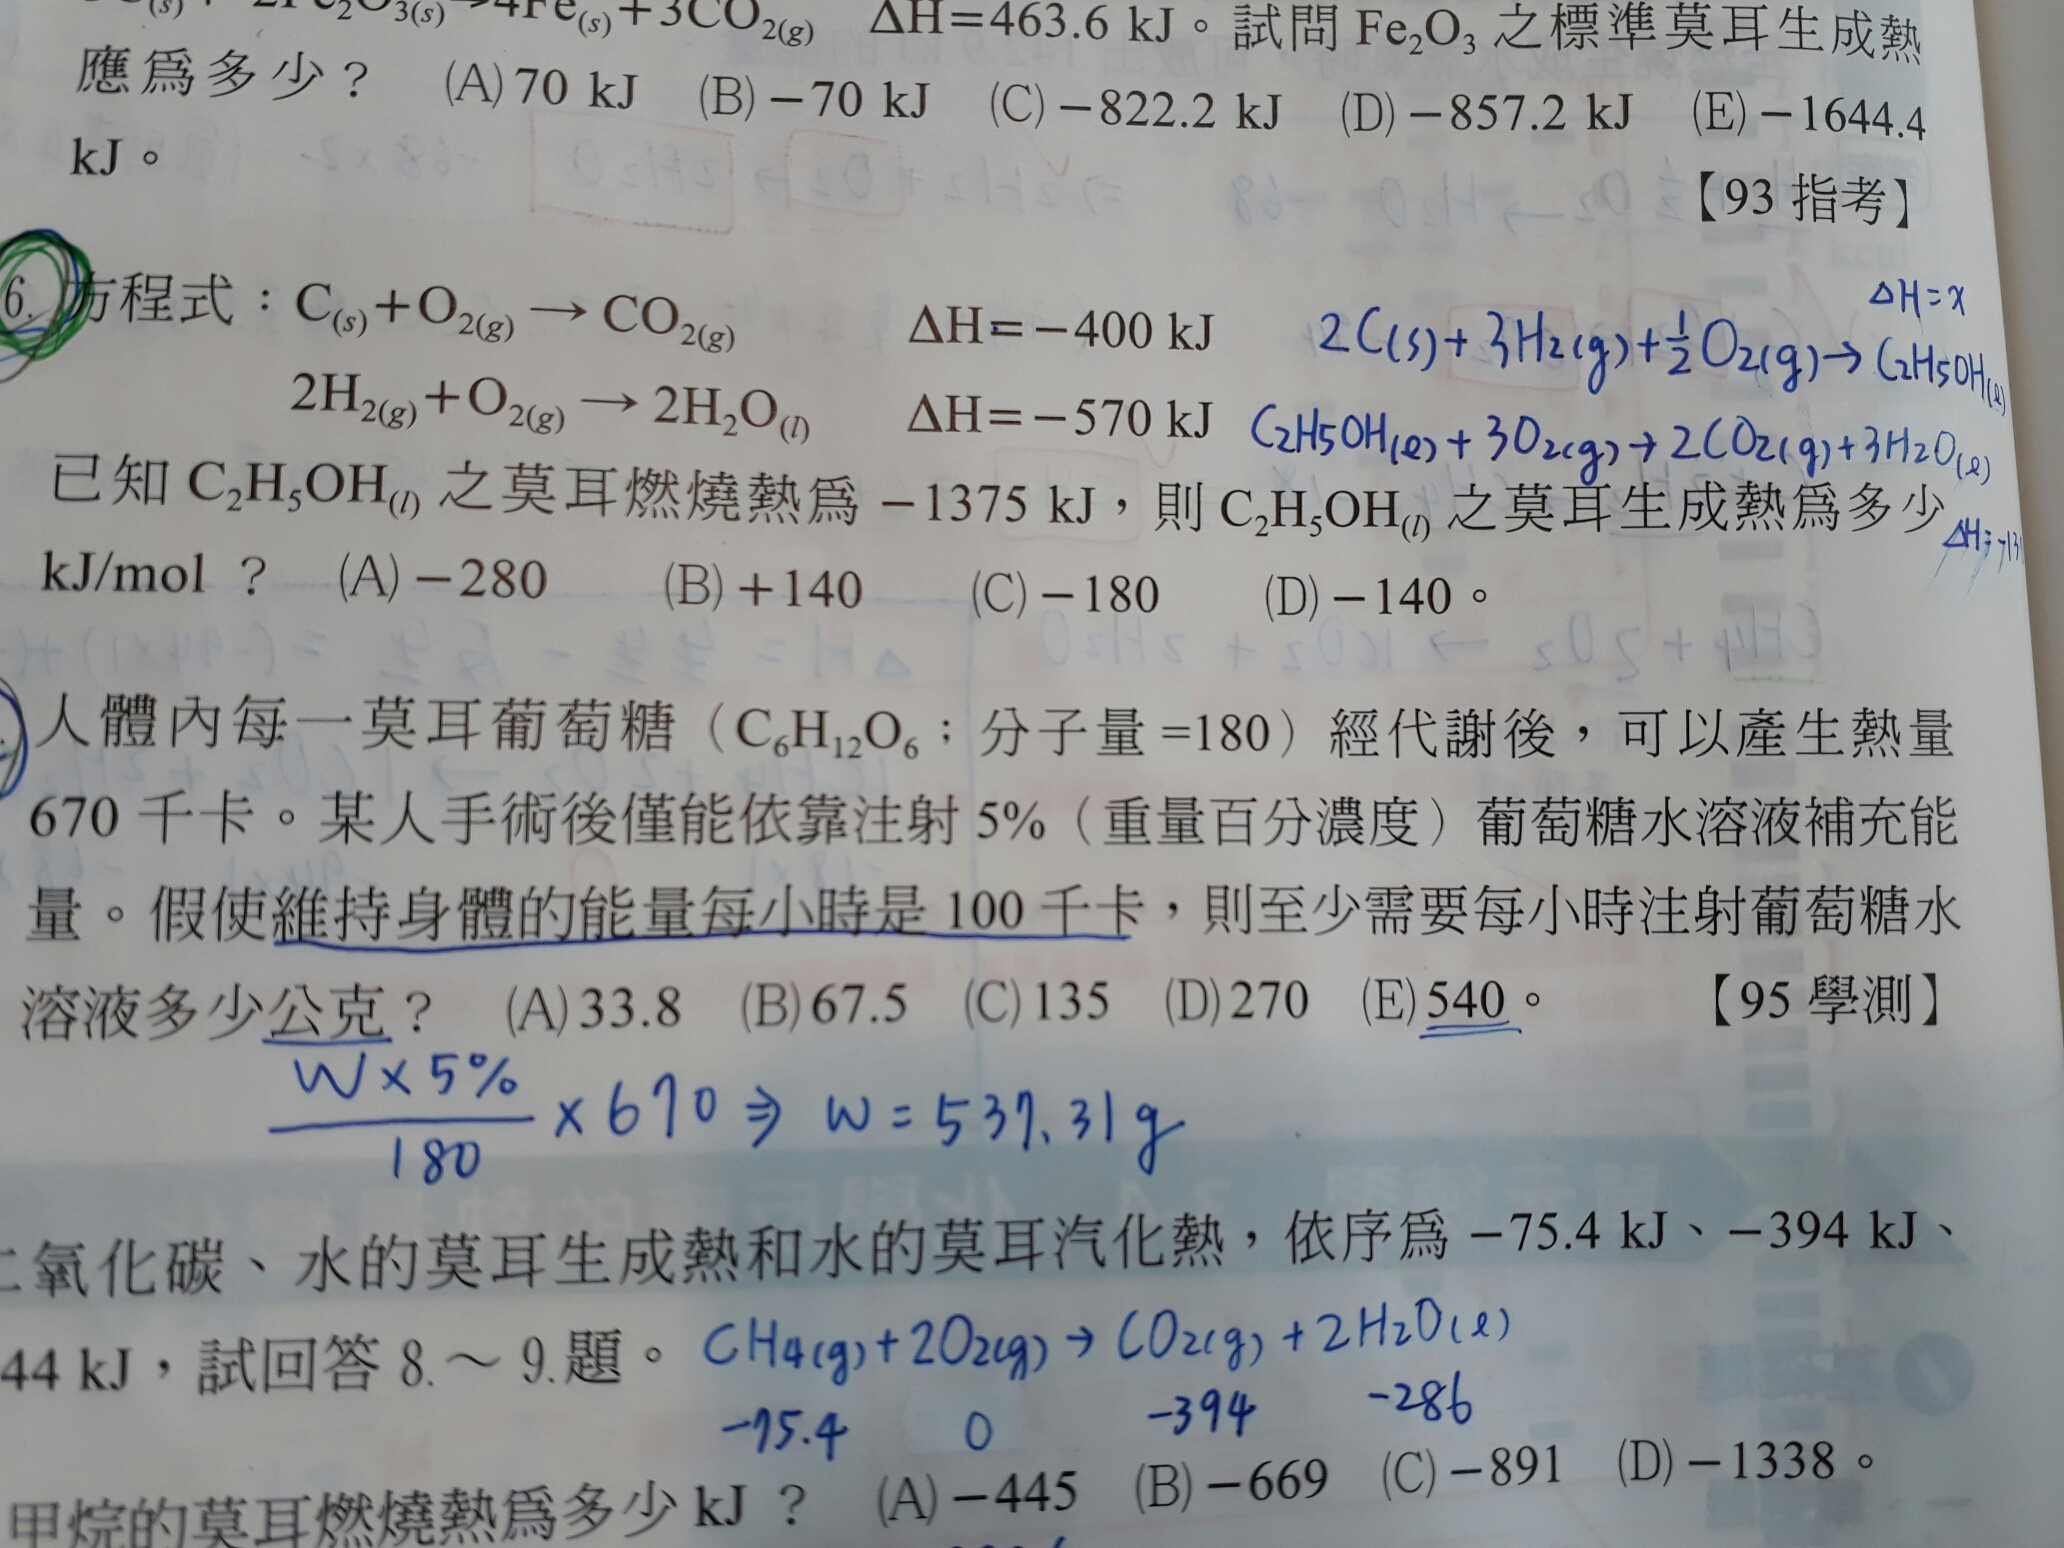 2Fe₂O₃(s)→4Fe(s)+3CO₂(g) ΔH=463.6 kJ。試問 Fe₂O₃ 之標準莫耳生成熱
應爲多少? (A) 70 kJ (B) −70 kJ (C) −822.2 kJ (D) −857.2 kJ (E) −1644.4
kJ。
【93 指考】
ΔH=x
6. 方程式:C(s)+O₂(g)→CO₂(g) ΔH=−400 kJ 2C(s)+3H₂(g)+½O₂(g)→C₂H₅OH(ℓ)
2H₂(g)+O₂(g)→2H₂O(l) ΔH=−570 kJ C₂H₅OH(ℓ)+3O₂(g)→2CO₂(g)+3H₂O(ℓ)
已知 C₂H₅OH(l) 之莫耳燃燒熱爲 −1375 kJ,則 C₂H₅OH(l) 之莫耳生成熱爲多少
kJ/mol ? (A) −280 (B) +140 (C) −180 (D) −140。
人體內每一莫耳葡萄糖(C₆H₁₂O₆;分子量=180)經代謝後,可以產生熱量
670 千卡。某人手術後僅能依靠注射 5%(重量百分濃度)葡萄糖水溶液補充能
量。假使維持身體的能量每小時是 100 千卡,則至少需要每小時注射葡萄糖水
溶液多少公克? (A) 33.8 (B) 67.5 (C) 135 (D) 270 (E) 540。 【95 學測】
W×5%
180
×670 ⇒ W=537.31g
二氧化碳、水的莫耳生成熱和水的莫耳汽化熱,依序爲 −75.4 kJ、−394 kJ、
44 kJ,試回答 8.～9.題。 CH₄(g)+2O₂(g)→CO₂(g)+2H₂O(ℓ)
-75.4 0 -394 -286
甲烷的莫耳燃燒熱爲多少 kJ ? (A) −445 (B) −669 (C) −891 (D) −1338。